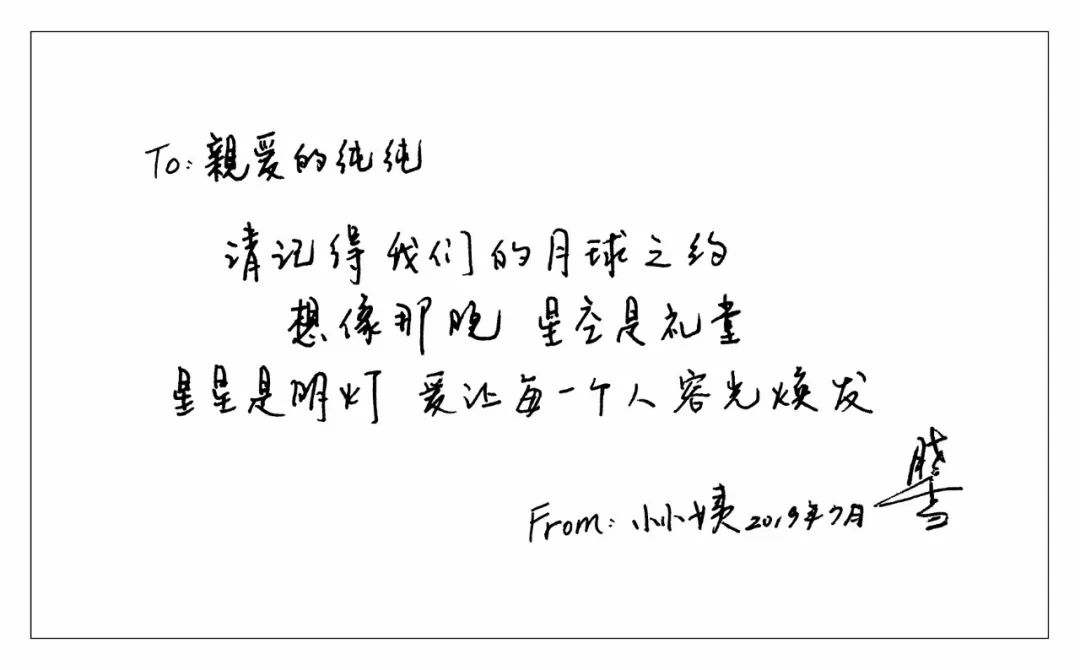 To: 親爱的纯纯
请记得我们的月球之约
想像那晚 星空是礼堂
星星是明灯 爱让每一个人容光焕发
From: 小小姨 2019年7月